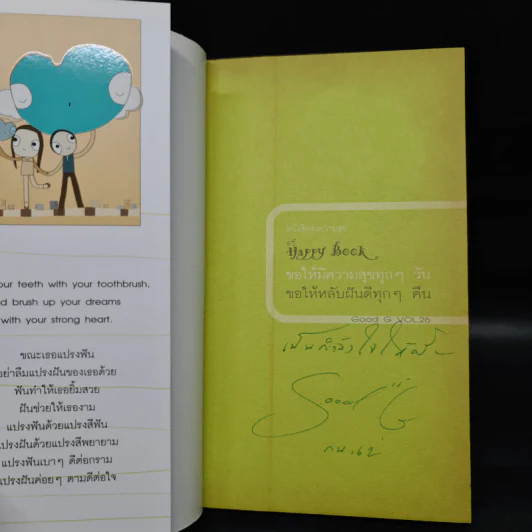 our teeth with your toothbrush,
d brush up your dreams
with your strong heart.
ขณะเธอแปรงฟัน
อย่าลืมแปรงฝันของเธอด้วย
ฟันทำให้เธอยิ้มสวย
ฝันช่วยให้เธองาม
แปรงฟันด้วยแปรงสีฟัน
แปรงฝันด้วยแปรงสีพยายาม
แปรงฟันเบาๆ ดีต่อกราม
แปรงฝันค่อยๆ ตามดีต่อใจ
Happy Book
ขอให้มีความสุขทุกๆ วัน
ขอให้หลับฝันดีทุกๆ คืน
Good G VOL.26
เป็นกำลังใจให้
Good G